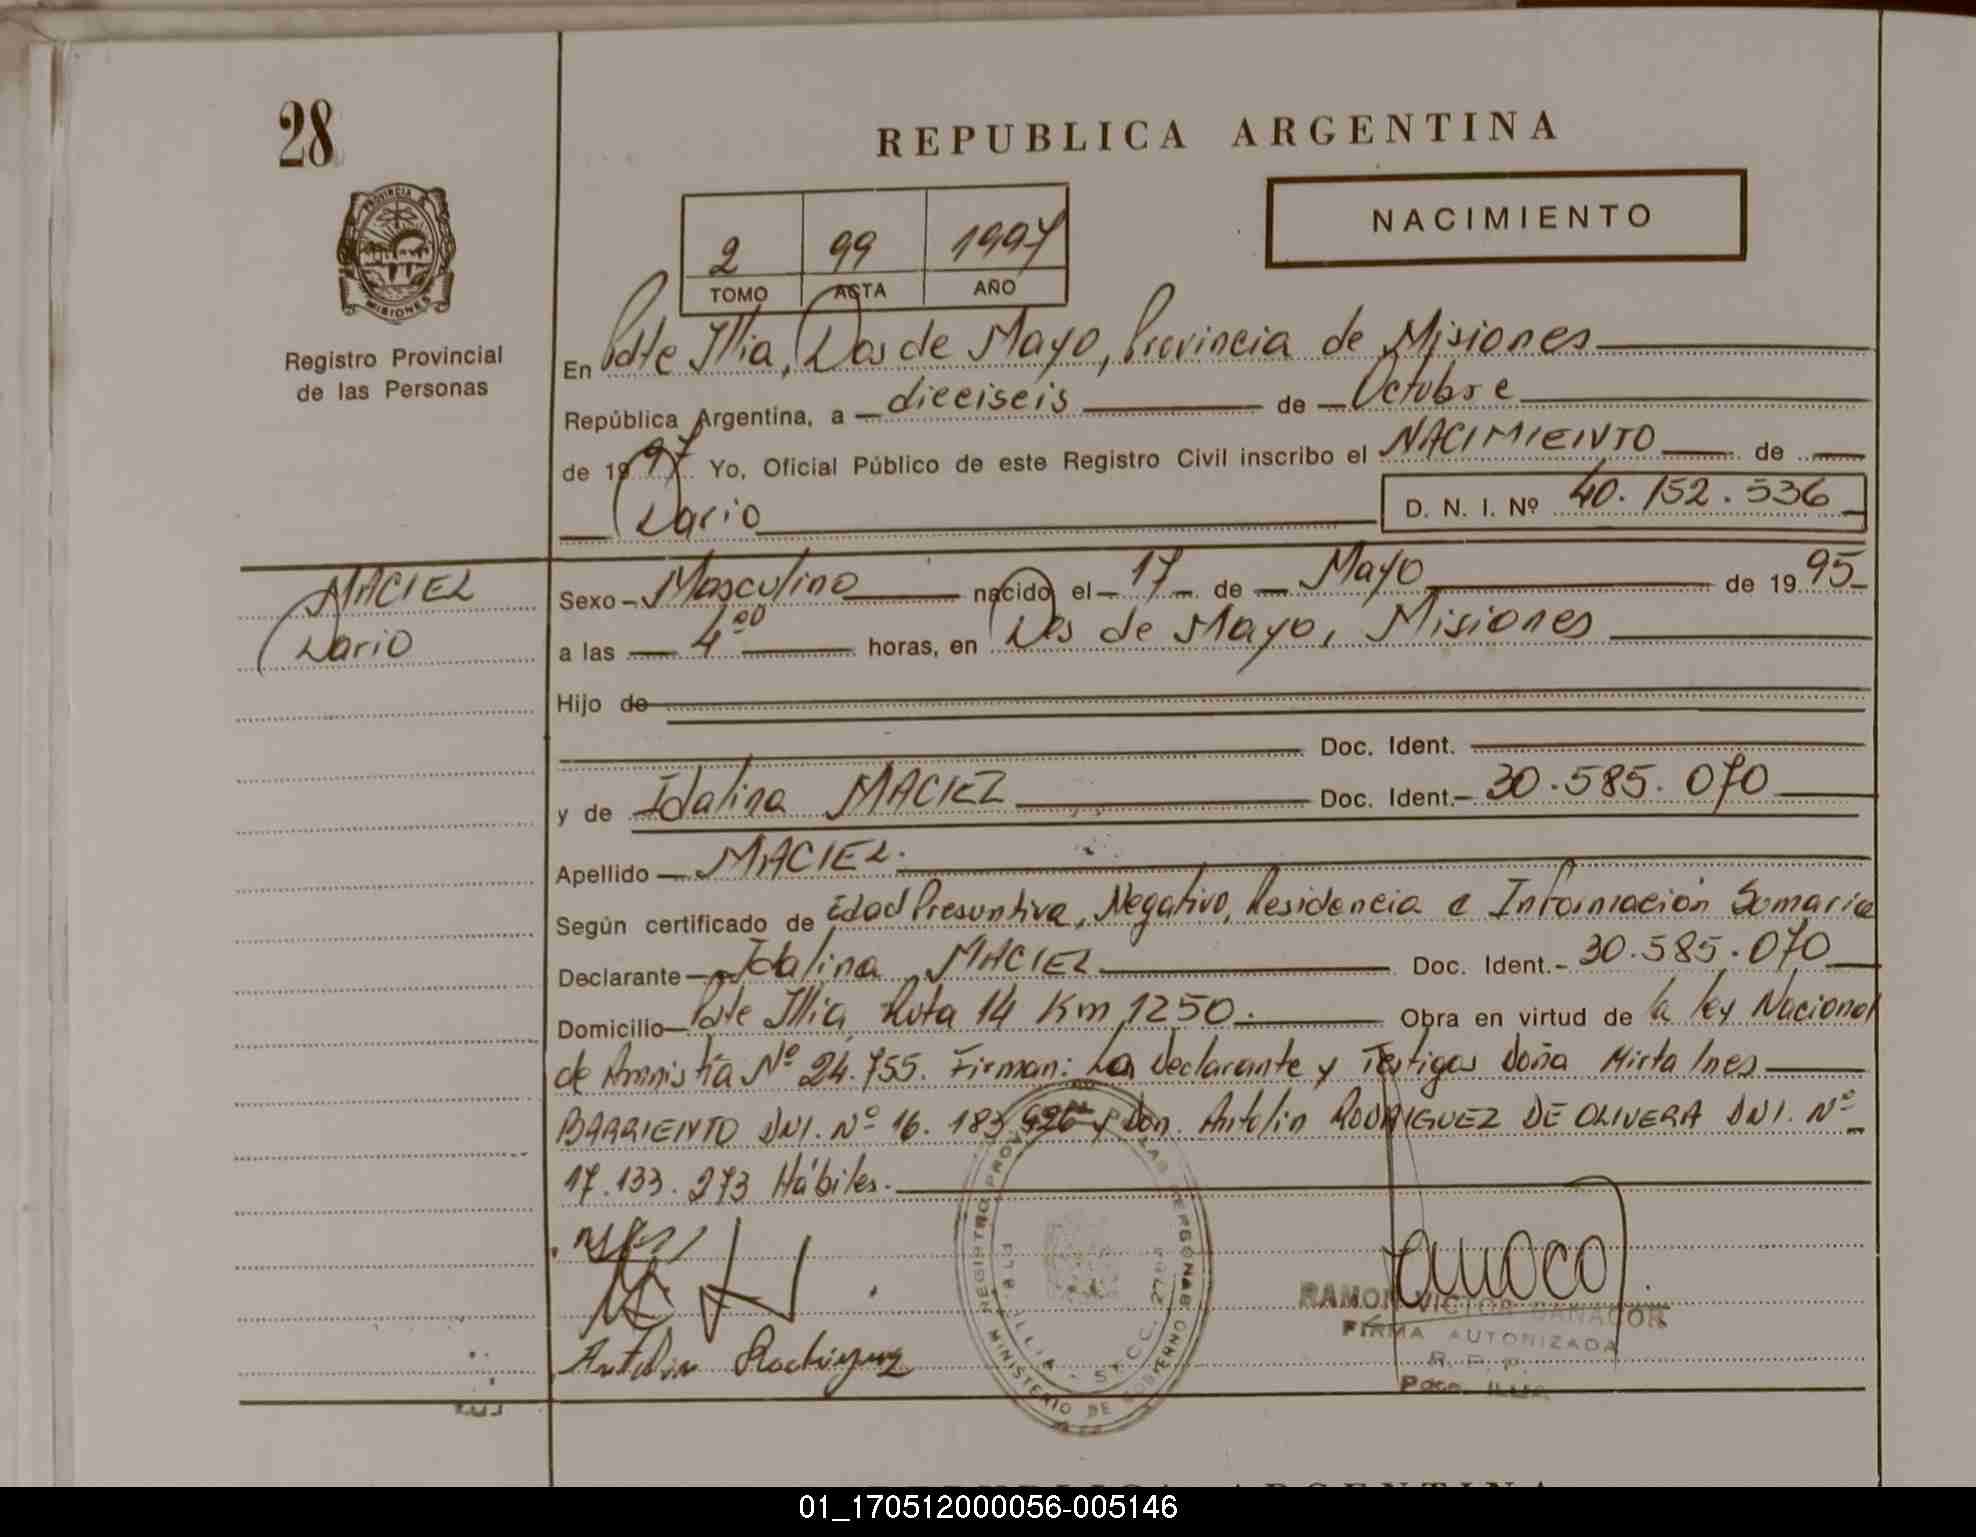 28
REPUBLICA ARGENTINA
PROVINCIA
MISIONES
Registro Provincial
de las Personas
2 99 1997
TOMO ACTA AÑO
NACIMIENTO
En Pdte Illia, Dos de Mayo, Provincia de Misiones
República Argentina, a dieciseis de Octubre
de 1997 Yo, Oficial Público de este Registro Civil inscribo el NACIMIENTO de
Dario D. N. I. Nº 40.152.536
MACIEL
Dario
Sexo Masculino nacido el 17 de Mayo de 1995
a las 4ºº horas, en Dos de Mayo, Misiones
Hijo de
Doc. Ident.
y de Idalina MACIEL Doc. Ident. 30.585.070
Apellido MACIEL.
Según certificado de Edad Presuntiva, Negativo, Residencia e Información Sumaria
Declarante Idalina MACIEL Doc. Ident. 30.585.070
Domicilio Pdte Illia Ruta 14 Km 1250. Obra en virtud de la ley Nacional
de Amnistía Nº 24.755. Firman: La declarante y Testigos doña Mirta Ines
BARRIENTO DNI. Nº 16.183.926 y Don. Antolin RODRIGUEZ DE OLIVERA DNI. Nº
17.133.273 Hábiles.
Antolin Rodriguez
REGISTRO PROV LAS PERSONAS
MINISTERIO DE GOBIERNO
RAMON VICTOR
FIRMA AUTORIZADA
R. P. P.
Pdte. ILLIA
REPUBLICA ARGENTINA
01_170512000056-005146